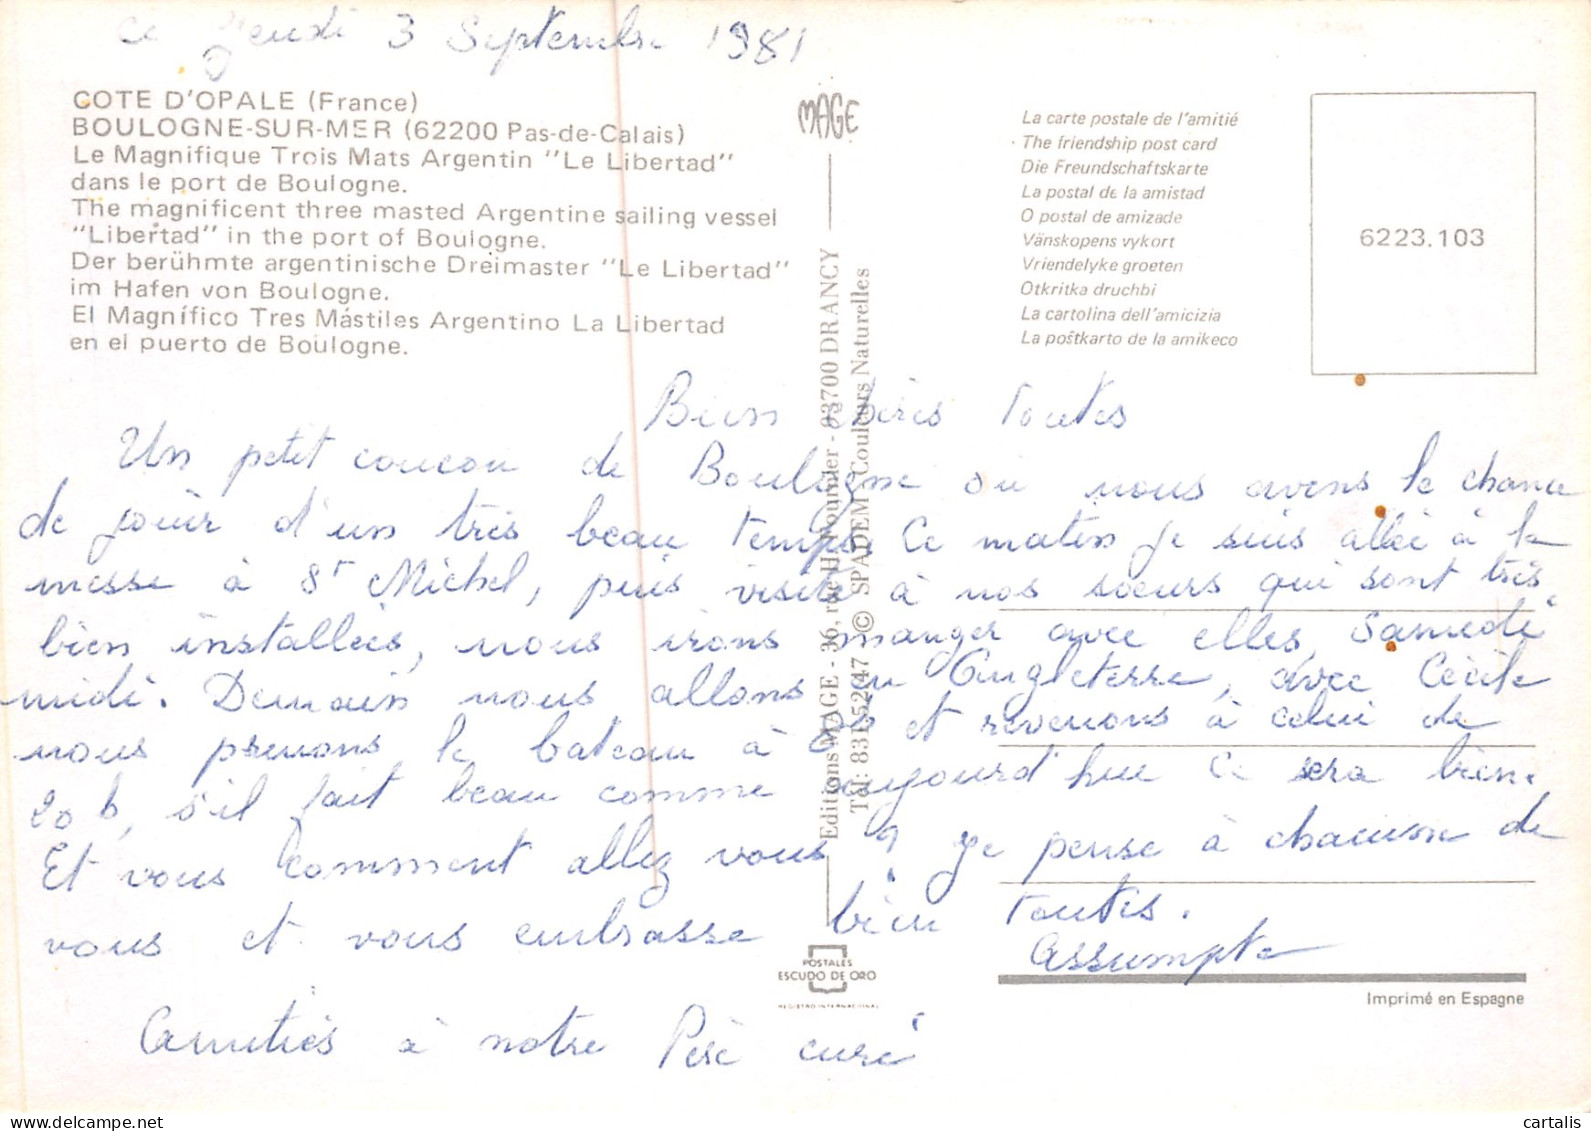 ce Jeudi 3 Septembre 1981
COTE D'OPALE (France)
BOULOGNE-SUR-MER (62200 Pas-de-Calais)
Le Magnifique Trois Mats Argentin "Le Libertad"
dans le port de Boulogne.
The magnificent three masted Argentine sailing vessel
"Libertad" in the port of Boulogne.
Der berühmte argentinische Dreimaster "Le Libertad"
im Hafen von Boulogne.
El Magnífico Tres Mástiles Argentino La Libertad
en el puerto de Boulogne.
MAGE
Editions MAGE - 36, rue H. Fournier - 93700 DRANCY
Tél: 831.52.47 © SPADEM Couleurs Naturelles
La carte postale de l'amitié
The friendship post card
Die Freundschaftskarte
La postal de la amistad
O postal de amizade
Vänskopens vykort
Vriendelyke groeten
Otkritka druchbi
La cartolina dell'amicizia
La poŝtkarto de la amikeco
6223.103
Bien chères toutes
Un petit coucou de Boulogne où nous avons la chance
de jouir d'un très beau temps. Ce matin je suis allée à la
messe à St Michel, puis visite à nos soeurs qui sont très
bien installées, nous irons manger avec elles, Samedi
midi. Demain nous allons en Angleterre, avec Cécile
nous prenons le bateau à et revenons à celui de
20 h, s'il fait beau comme aujourd'hui ce sera bien.
Et vous comment allez vous ? Je pense à chacune de
vous et vous embrasse bien toutes.
Assumpta
Amitiés à notre Père curé
POSTALES
ESCUDO DE ORO
REGISTRO INTERNACIONAL
Imprimé en Espagne
cartalis